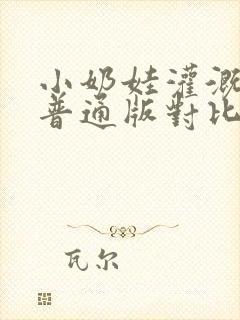 小奶娃灌溉
普通版對比
瓦尔